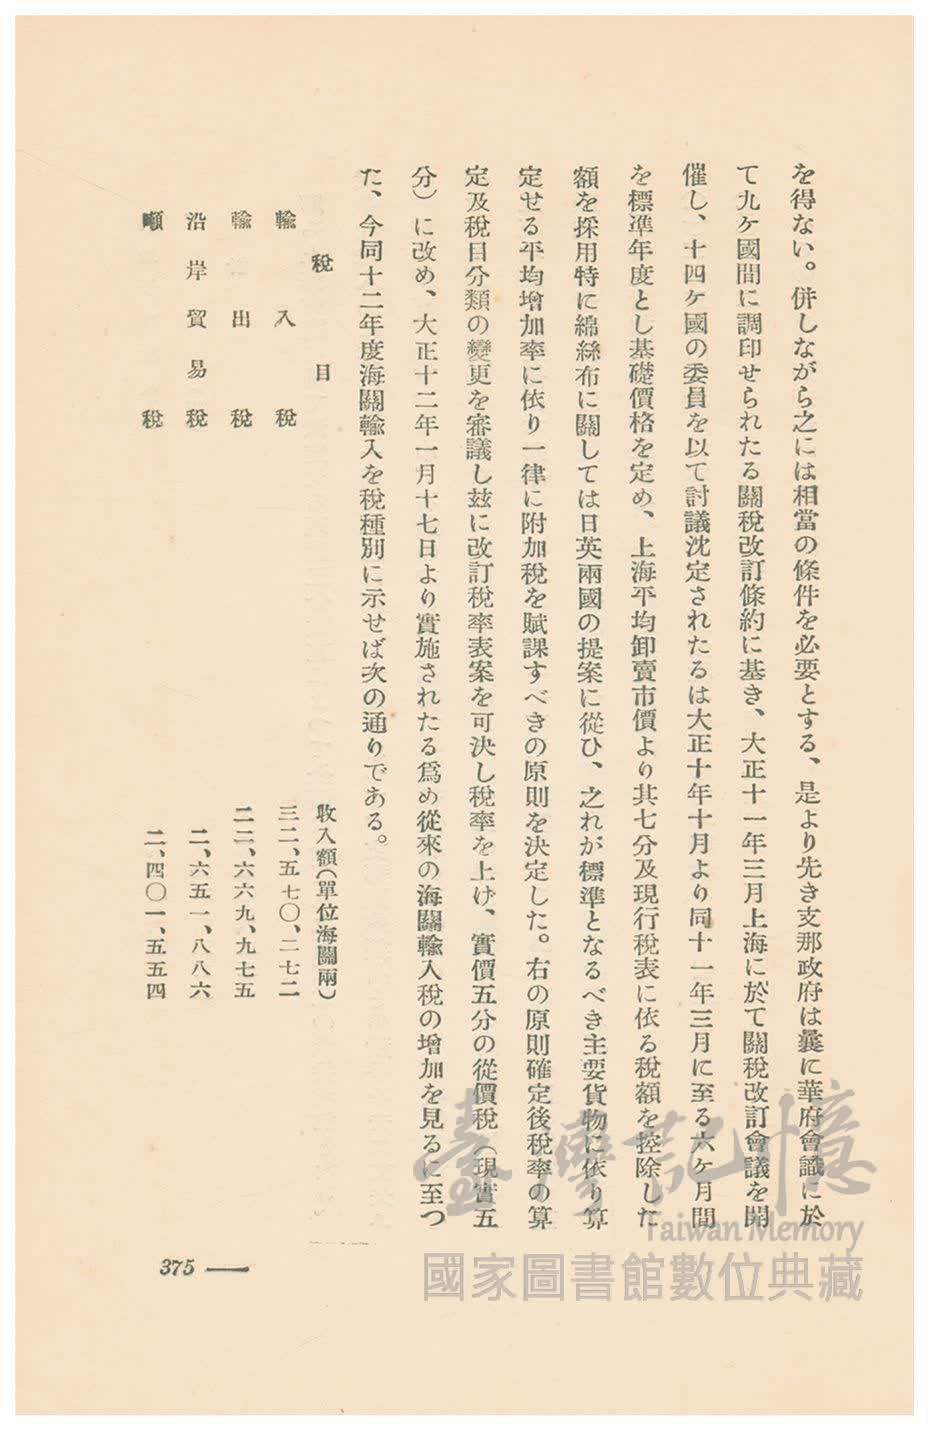 を得ない。併しながら之には相當の條件を必要とする、是より先き支那政府は曩に華府會議に於
て九ケ國間に調印せられたる關稅改訂條約に基き、大正十一年三月上海に於て關稅改訂會議を開
催し、十四ケ國の委員を以て討議沈定されたるは大正十年十月より同十一年三月に至る六ケ月間
を標準年度とし基礎價格を定め、上海平均卸賣市價より其七分及現行稅表に依る稅額を控除した
額を採用特に綿絲布に關しては日英兩國の提案に從ひ、之れが標準となるべき主要貨物に依り算
定せる平均增加率に依り一律に附加稅を賦課すべきの原則を決定した。右の原則確定後稅率の算
定及稅目分類の變更を審議し玆に改訂稅率表案を可決し稅率を上げ、實價五分の從價稅（現實五
分）に改め、大正十二年一月十七日より實施されたる爲め從來の海關輸入稅の增加を見るに至つ
た、今同十二年度海關輸入を稅種別に示せば次の通りである。
稅目 收入額（單位海關兩）
輸入稅 三二、五七〇、二七二
輸出稅 二二、六六九、九七五
沿岸貿易稅 二、六五一、八八六
噸稅 二、四〇一、五五四
375
臺灣記憶
Taiwan Memory
國家圖書館數位典藏